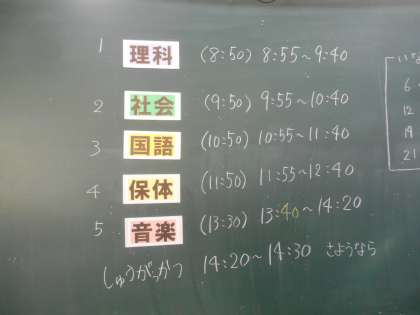 1 理科 (8:50) 8:55~9:40
2 社会 (9:50) 9:55~10:40
3 国語 (10:50) 10:55~11:40
4 保体 (11:50) 11:55~12:40
5 音楽 (13:30) 13:40~14:20
しゅうがっかつ 14:20~14:30 さようなら
6
12
19
21